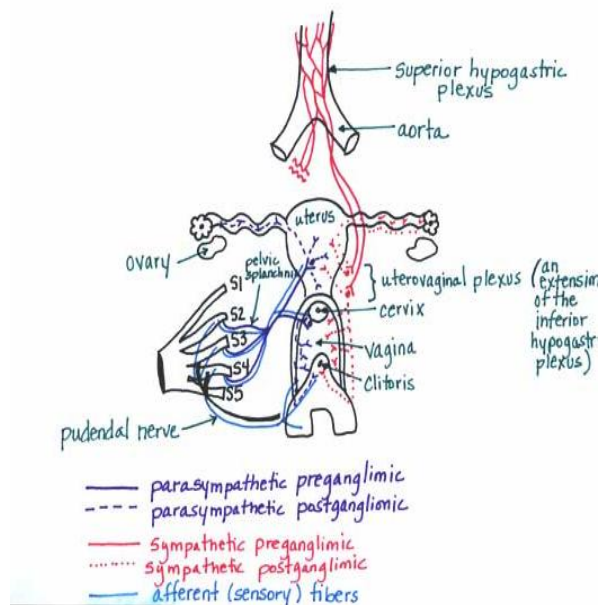 superior hypogastric
plexus
aorta
uterus
ovary
pelvic
splanchnic
S1
S2
S3
S4
S5
uterovaginal plexus (an
extension
of the
inferior
hypogastric
plexus)
cervix
vagina
clitoris
pudendal nerve
parasympathetic preganglimic
parasympathetic postganglionic
sympathetic preganglimic
sympathetic postganglionic
afferent (sensory) fibers